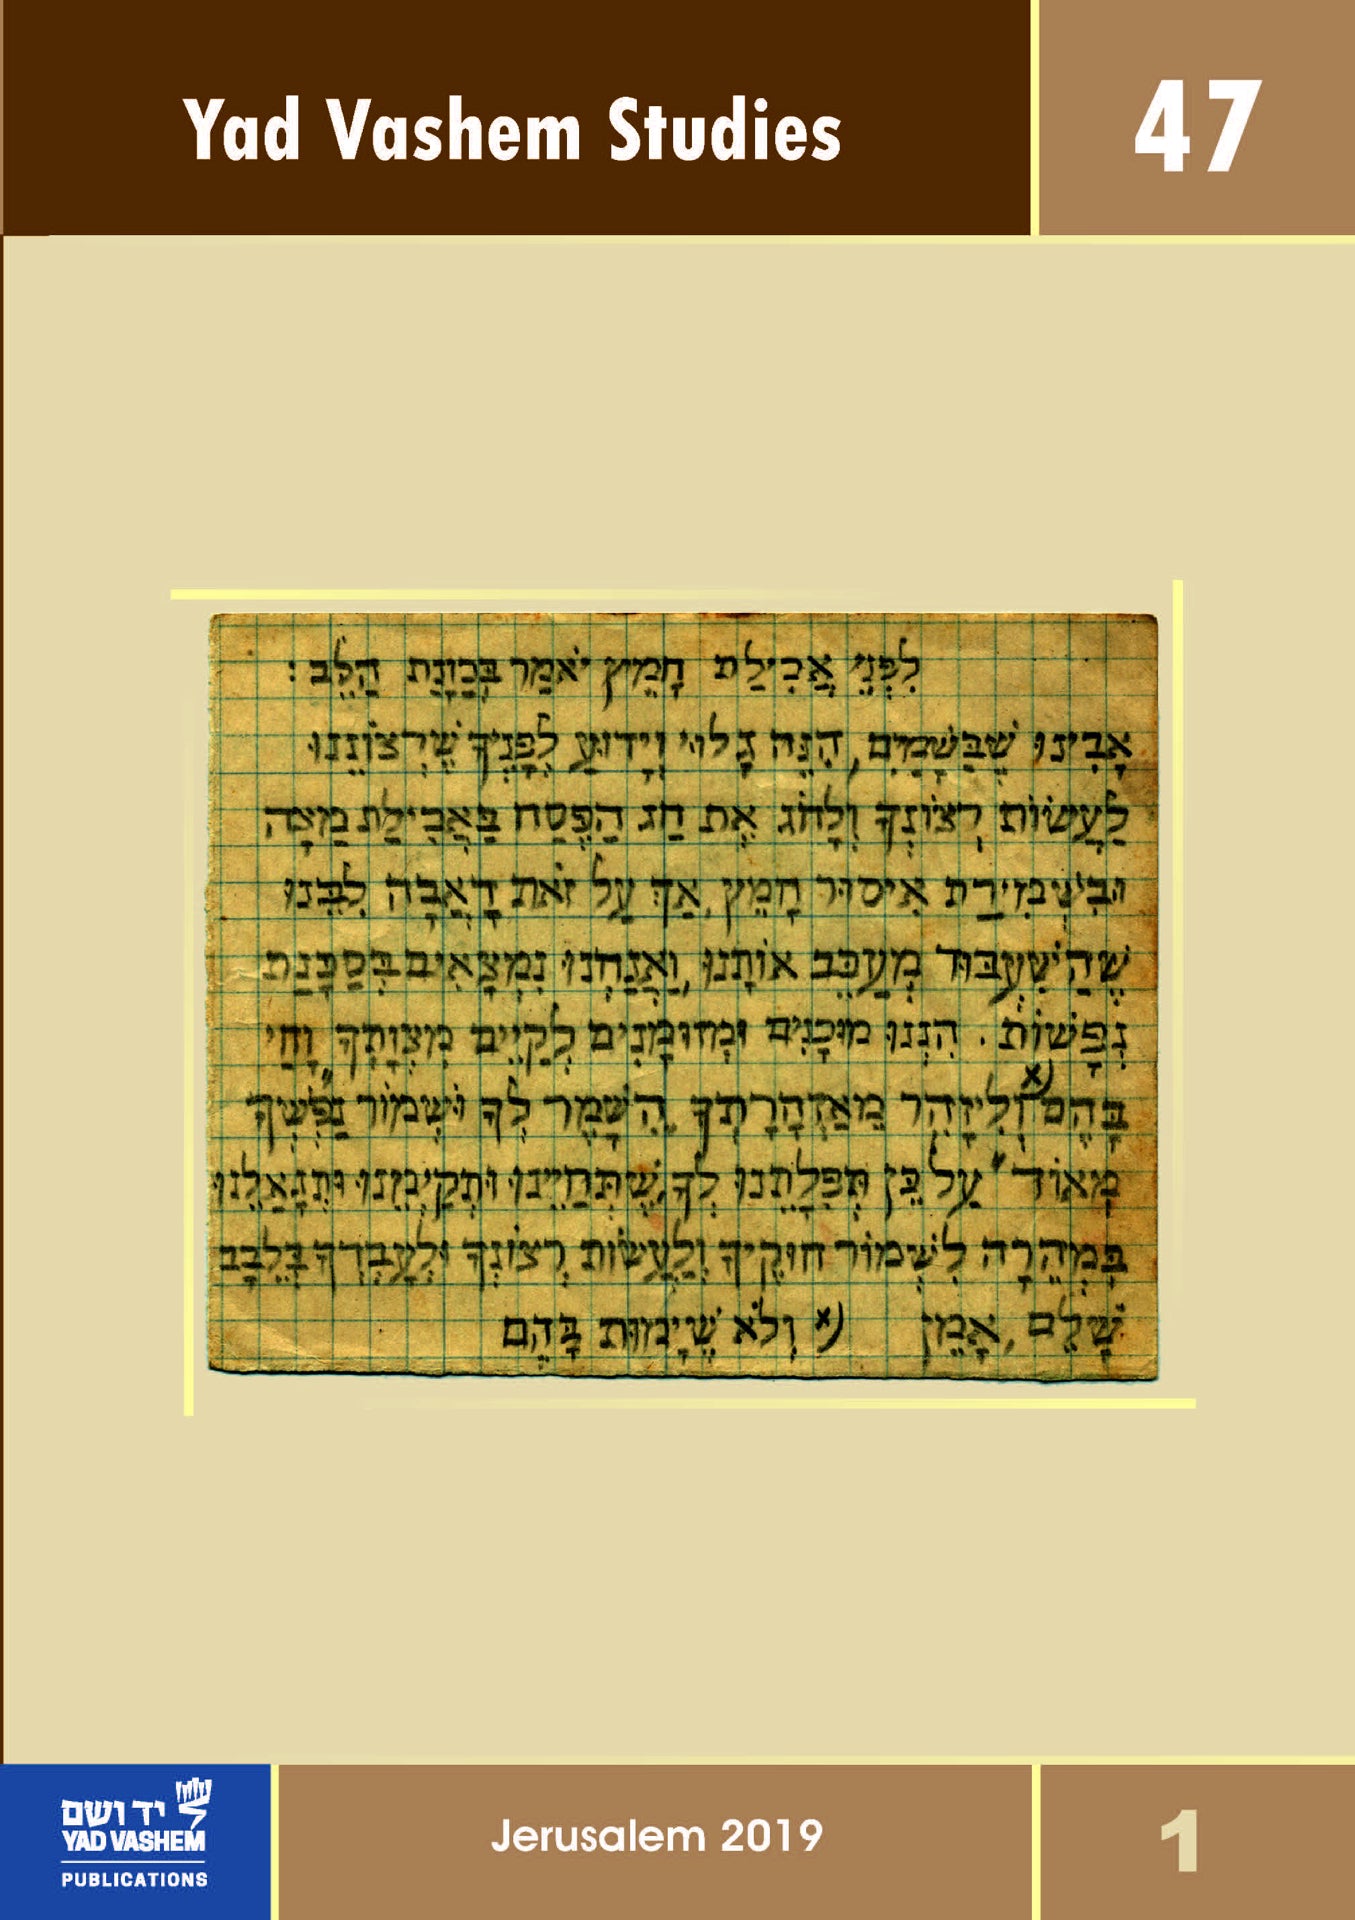 Yad Vashem Studies
47
לִפְנֵי אֲכִילַת חָמֵץ יֹאמַר בְּכַוָּנַת הַלֵּב:
אָבִינוּ שֶׁבַּשָּׁמַיִם, הִנֵּה גָלוּי וְיָדוּעַ לְפָנֶיךָ שֶׁרְצוֹנֵנוּ
לַעֲשׂוֹת רְצוֹנְךָ וְלָחֹג אֶת חַג הַפֶּסַח בַּאֲכִילַת מַצָּה
וּבִשְׁמִירַת אִיסוּר חָמֵץ, אַךְ עַל זֹאת דָאֲבָה לִבֵּנוּ
שֶׁהַשִּׁעְבּוּד מְעַכֵּב אוֹתָנוּ, וַאֲנַחְנוּ נִמְצָאִים בְּסַכָּנַת
נְפָשׁוֹת. הִנְנוּ מוּכָנִים וּמְזוּמָנִים לְקַיֵּים מִצְוֹתֶךָ, "וָחַי
בָּהֶם" x) וְלִיזָּהֵר מֵאַזְהָרָתְךָ, "הִשָּׁמֶר לְךָ וּשְׁמוֹר נַפְשְׁךָ
מְאוֹד" עַל כֵּן תְּפִלָּתֵנוּ לְךָ, שֶׁתְּחַיֵּינוּ וּתְקַיְּמֵנוּ וְתִגְאָלֵנוּ
בִּמְהֵרָה לִשְׁמוֹר חוּקֶיךָ וְלַעֲשׂוֹת רְצוֹנְךָ וּלְעָבְדְךָ בְּלֵבָב
שָׁלֵם, אָמֵן x) וְלֹא שֶׁיָּמוּת בָּהֶם
יד ושם
YAD VASHEM
PUBLICATIONS
Jerusalem 2019
1